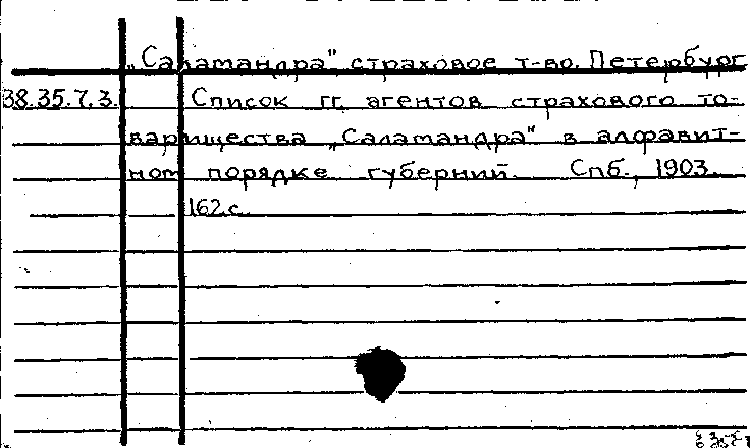 „Саламандра" страховое т-во. Петербург
38.35.7.3. Список гг. агентов страхового то-
варищества „Саламандра" в алфавит-
ном порядке губерний. Спб., 1903.
162 с.